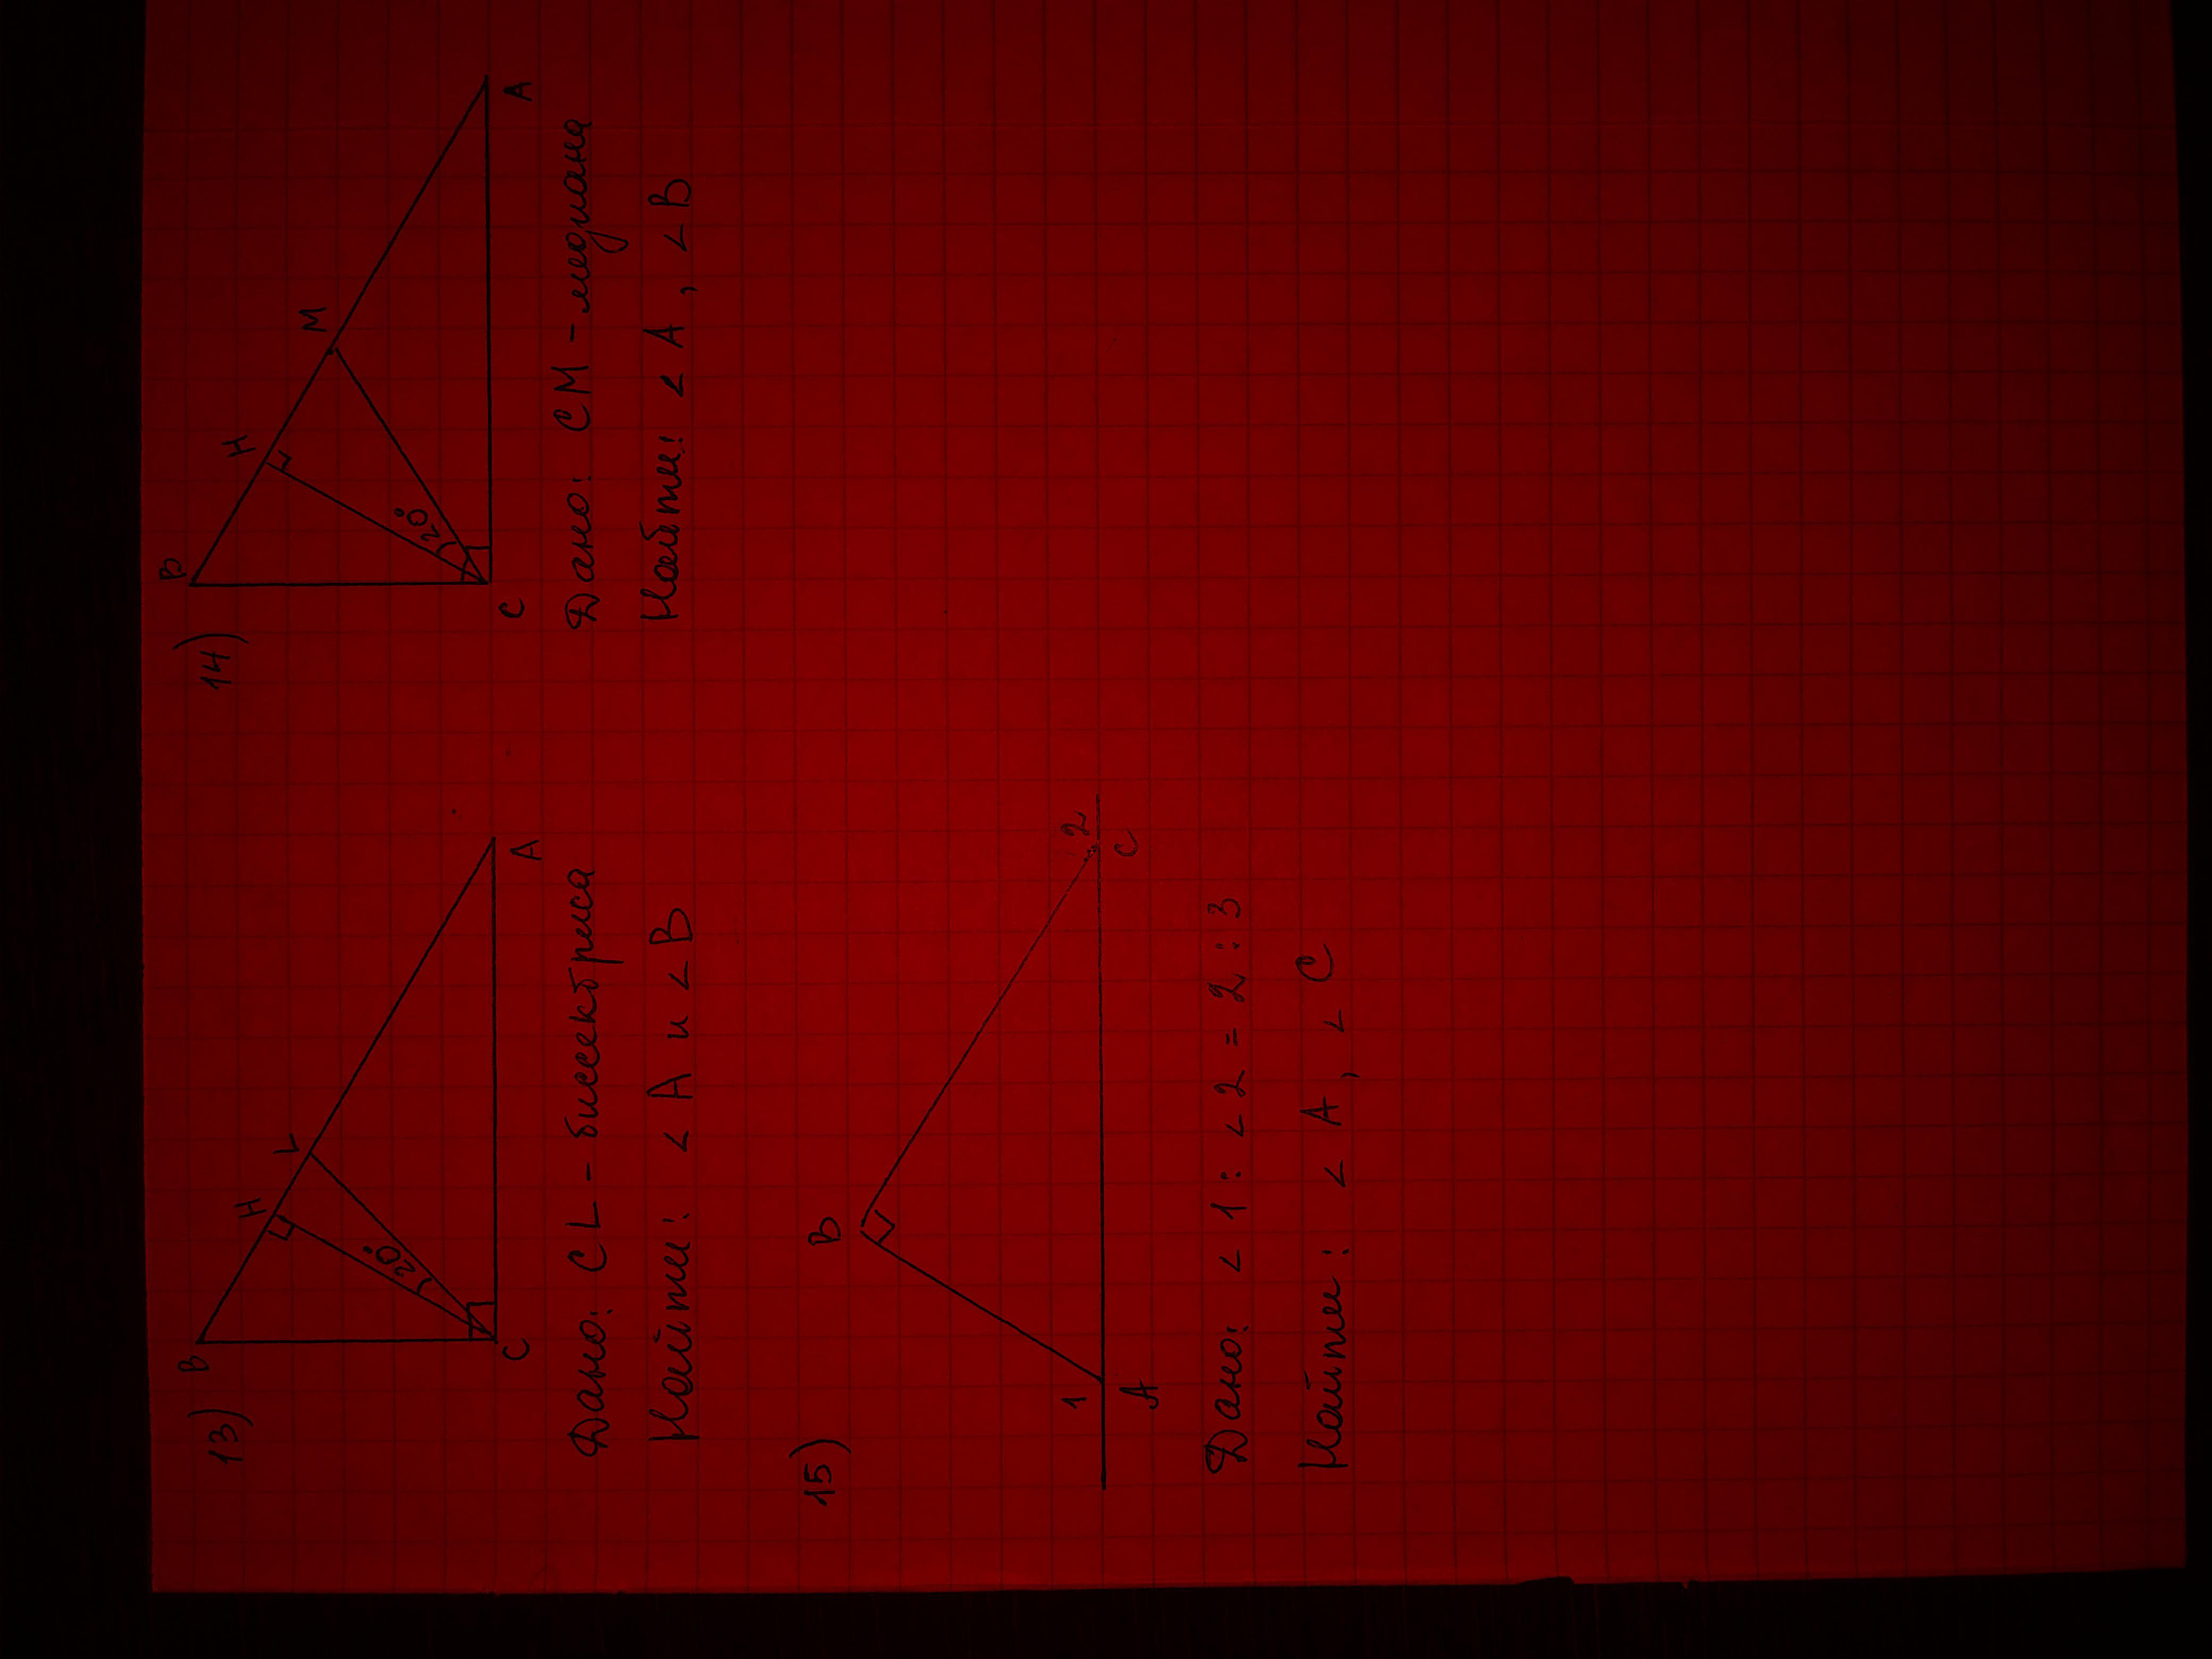 13)
B
H
L
20°
C
A
Дано: CL - биссектриса
Найти: < A и < B
14)
B
H
M
20°
C
A
Дано: CM - медиана
Найти: < A, < B
15)
B
1
2
A
C
Дано: < 1 : < 2 = 2 : 3
Найти: < A, < C